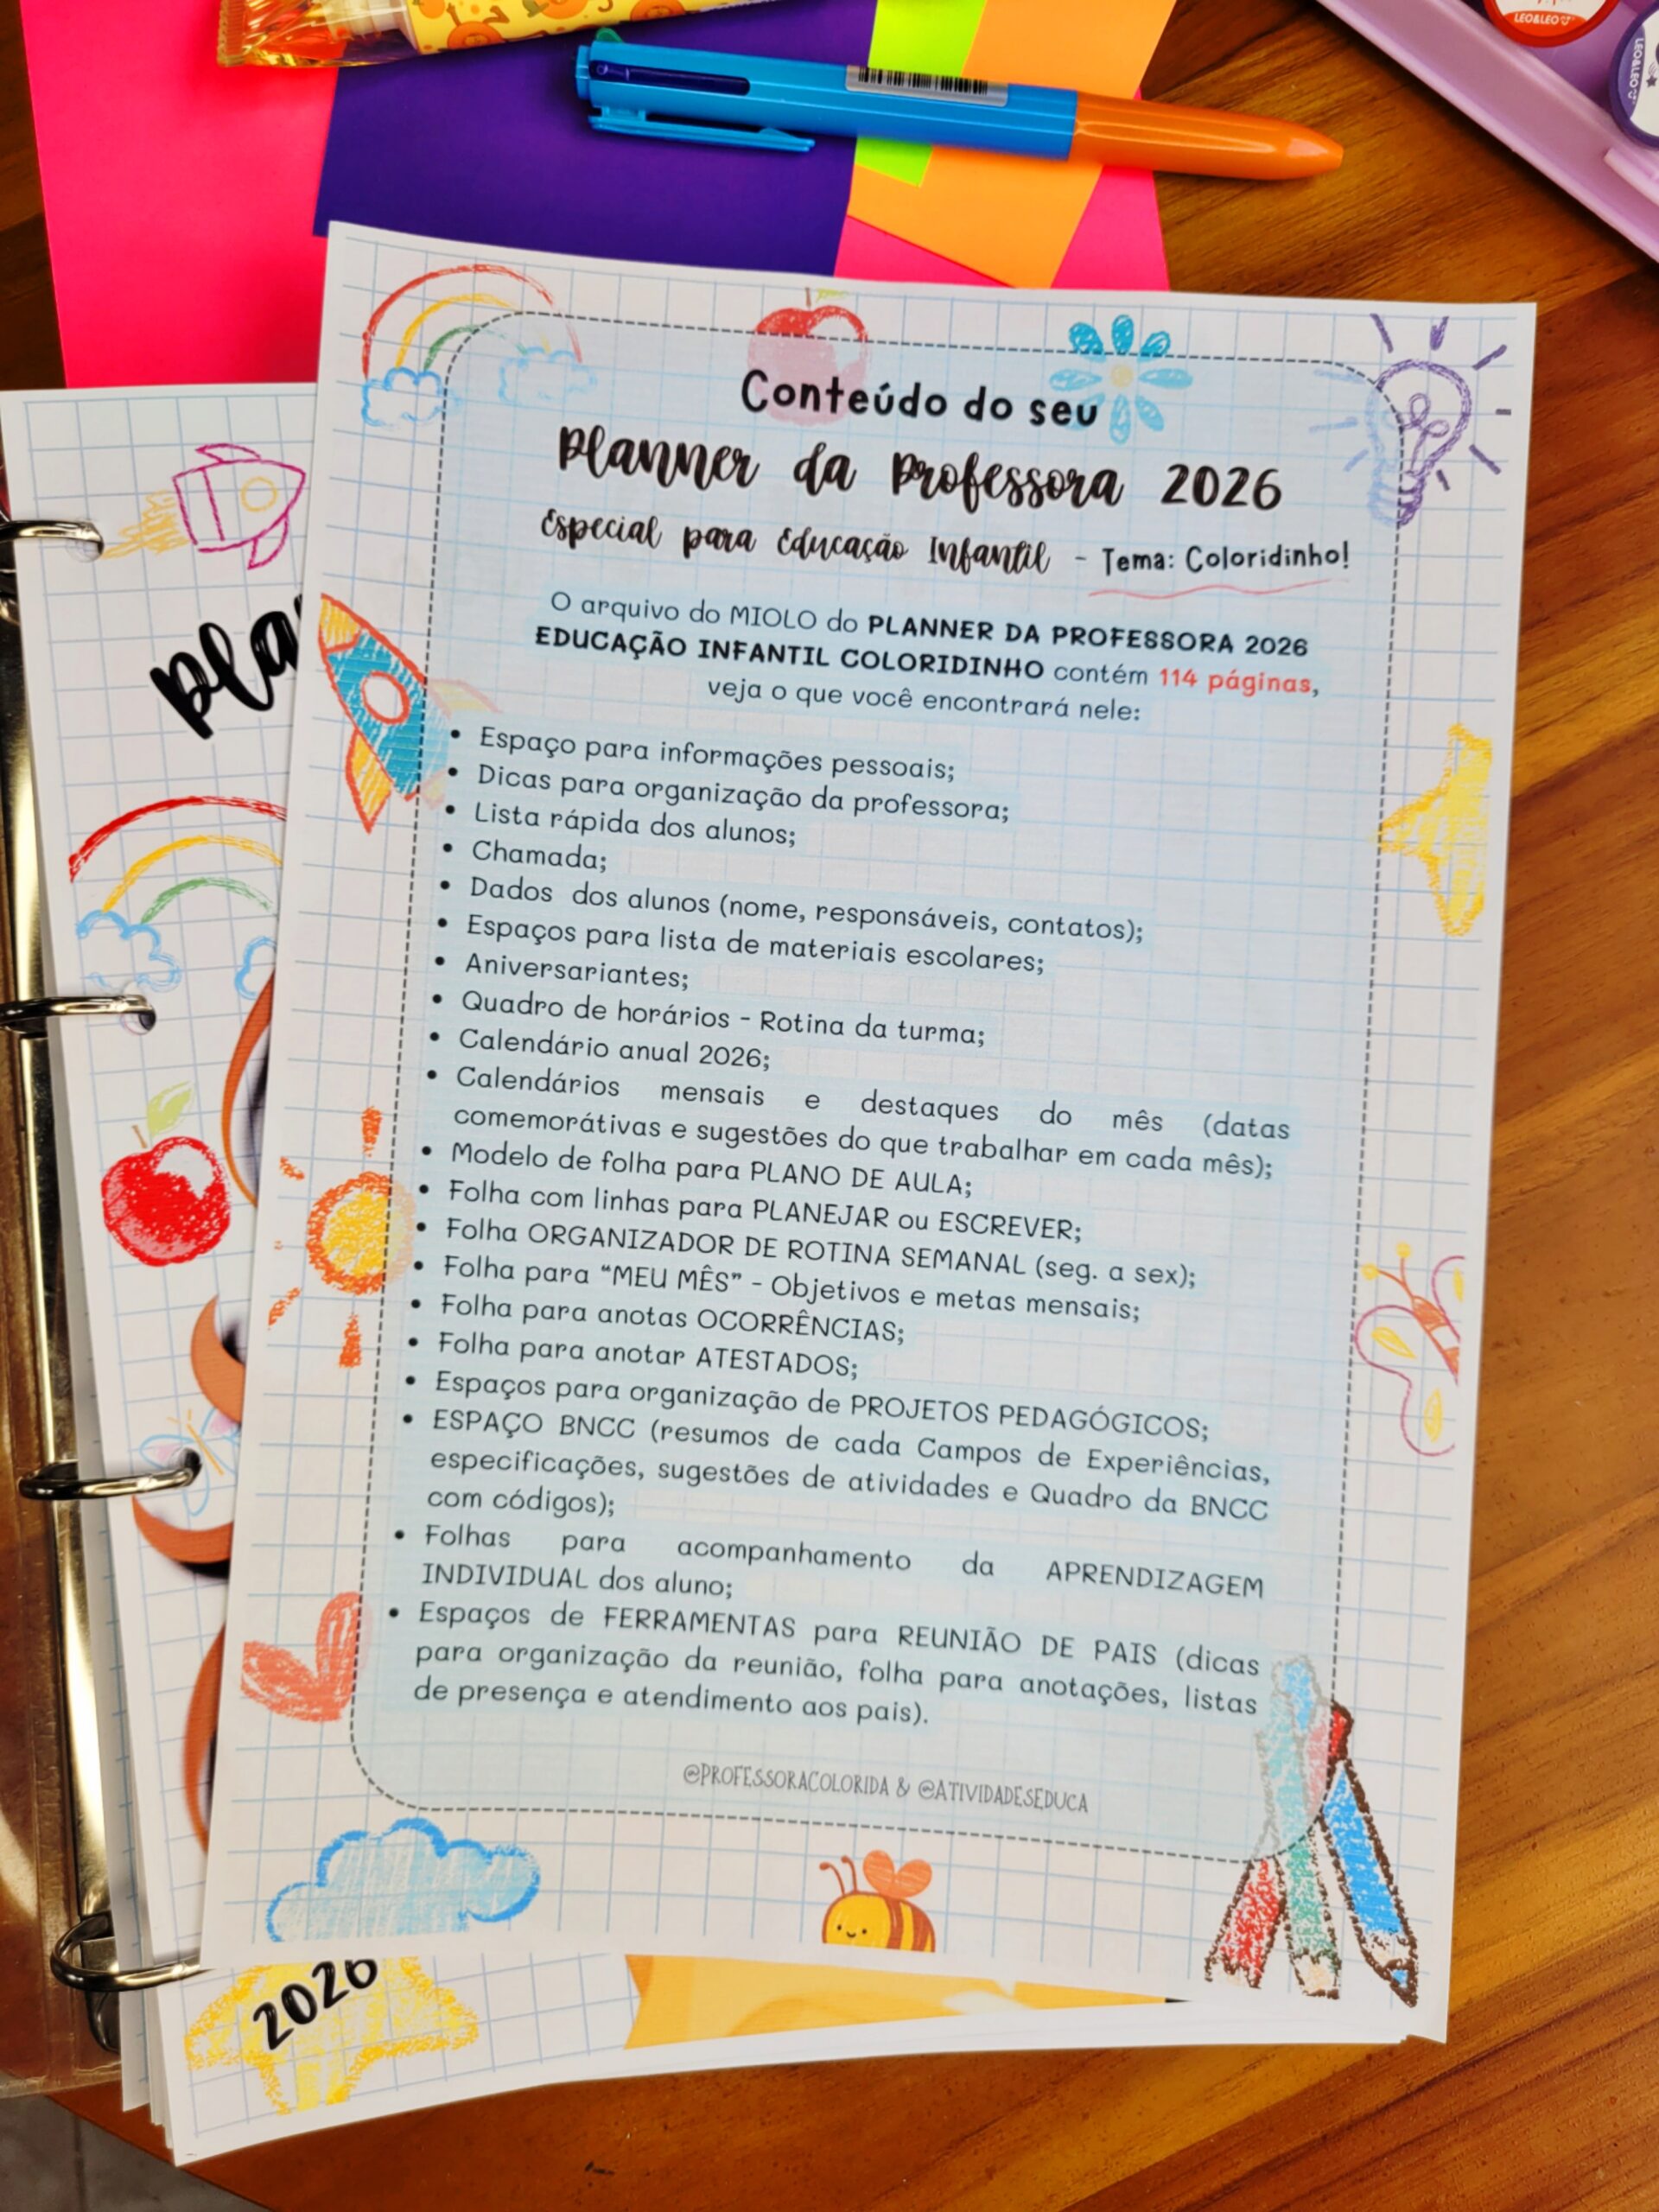 LEO&LEO
LEO&LEO
Conteúdo do seu
Planner da Professora 2026
Especial para Educação Infantil - Tema: Coloridinho!
O arquivo do MIOLO do PLANNER DA PROFESSORA 2026
EDUCAÇÃO INFANTIL COLORIDINHO contém 114 páginas,
veja o que você encontrará nele:
• Espaço para informações pessoais;
• Dicas para organização da professora;
• Lista rápida dos alunos;
• Chamada;
• Dados dos alunos (nome, responsáveis, contatos);
• Espaços para lista de materiais escolares;
• Aniversariantes;
• Quadro de horários - Rotina da turma;
• Calendário anual 2026;
• Calendários mensais e destaques do mês (datas
comemorátivas e sugestões do que trabalhar em cada mês);
• Modelo de folha para PLANO DE AULA;
• Folha com linhas para PLANEJAR ou ESCREVER;
• Folha ORGANIZADOR DE ROTINA SEMANAL (seg. a sex);
• Folha para “MEU MÊS” - Objetivos e metas mensais;
• Folha para anotas OCORRÊNCIAS;
• Folha para anotar ATESTADOS;
• Espaços para organização de PROJETOS PEDAGÓGICOS;
• ESPAÇO BNCC (resumos de cada Campos de Experiências,
especificações, sugestões de atividades e Quadro da BNCC
com códigos);
• Folhas para acompanhamento da APRENDIZAGEM
INDIVIDUAL dos aluno;
• Espaços de FERRAMENTAS para REUNIÃO DE PAIS (dicas
para organização da reunião, folha para anotações, listas
de presença e atendimento aos pais).
@PROFESSORACOLORIDA & @ATIVIDADESEDUCA
Pla
2026